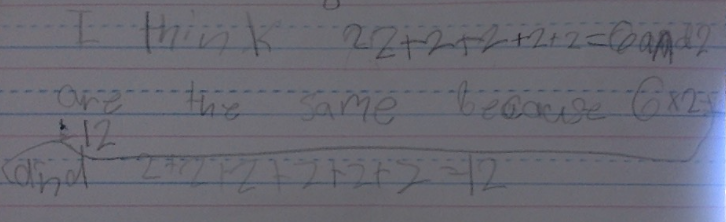 I think 22+2+2+2+2=6and2
are the same because 6x2=
=12
and 2+2+2+2+2+2=12